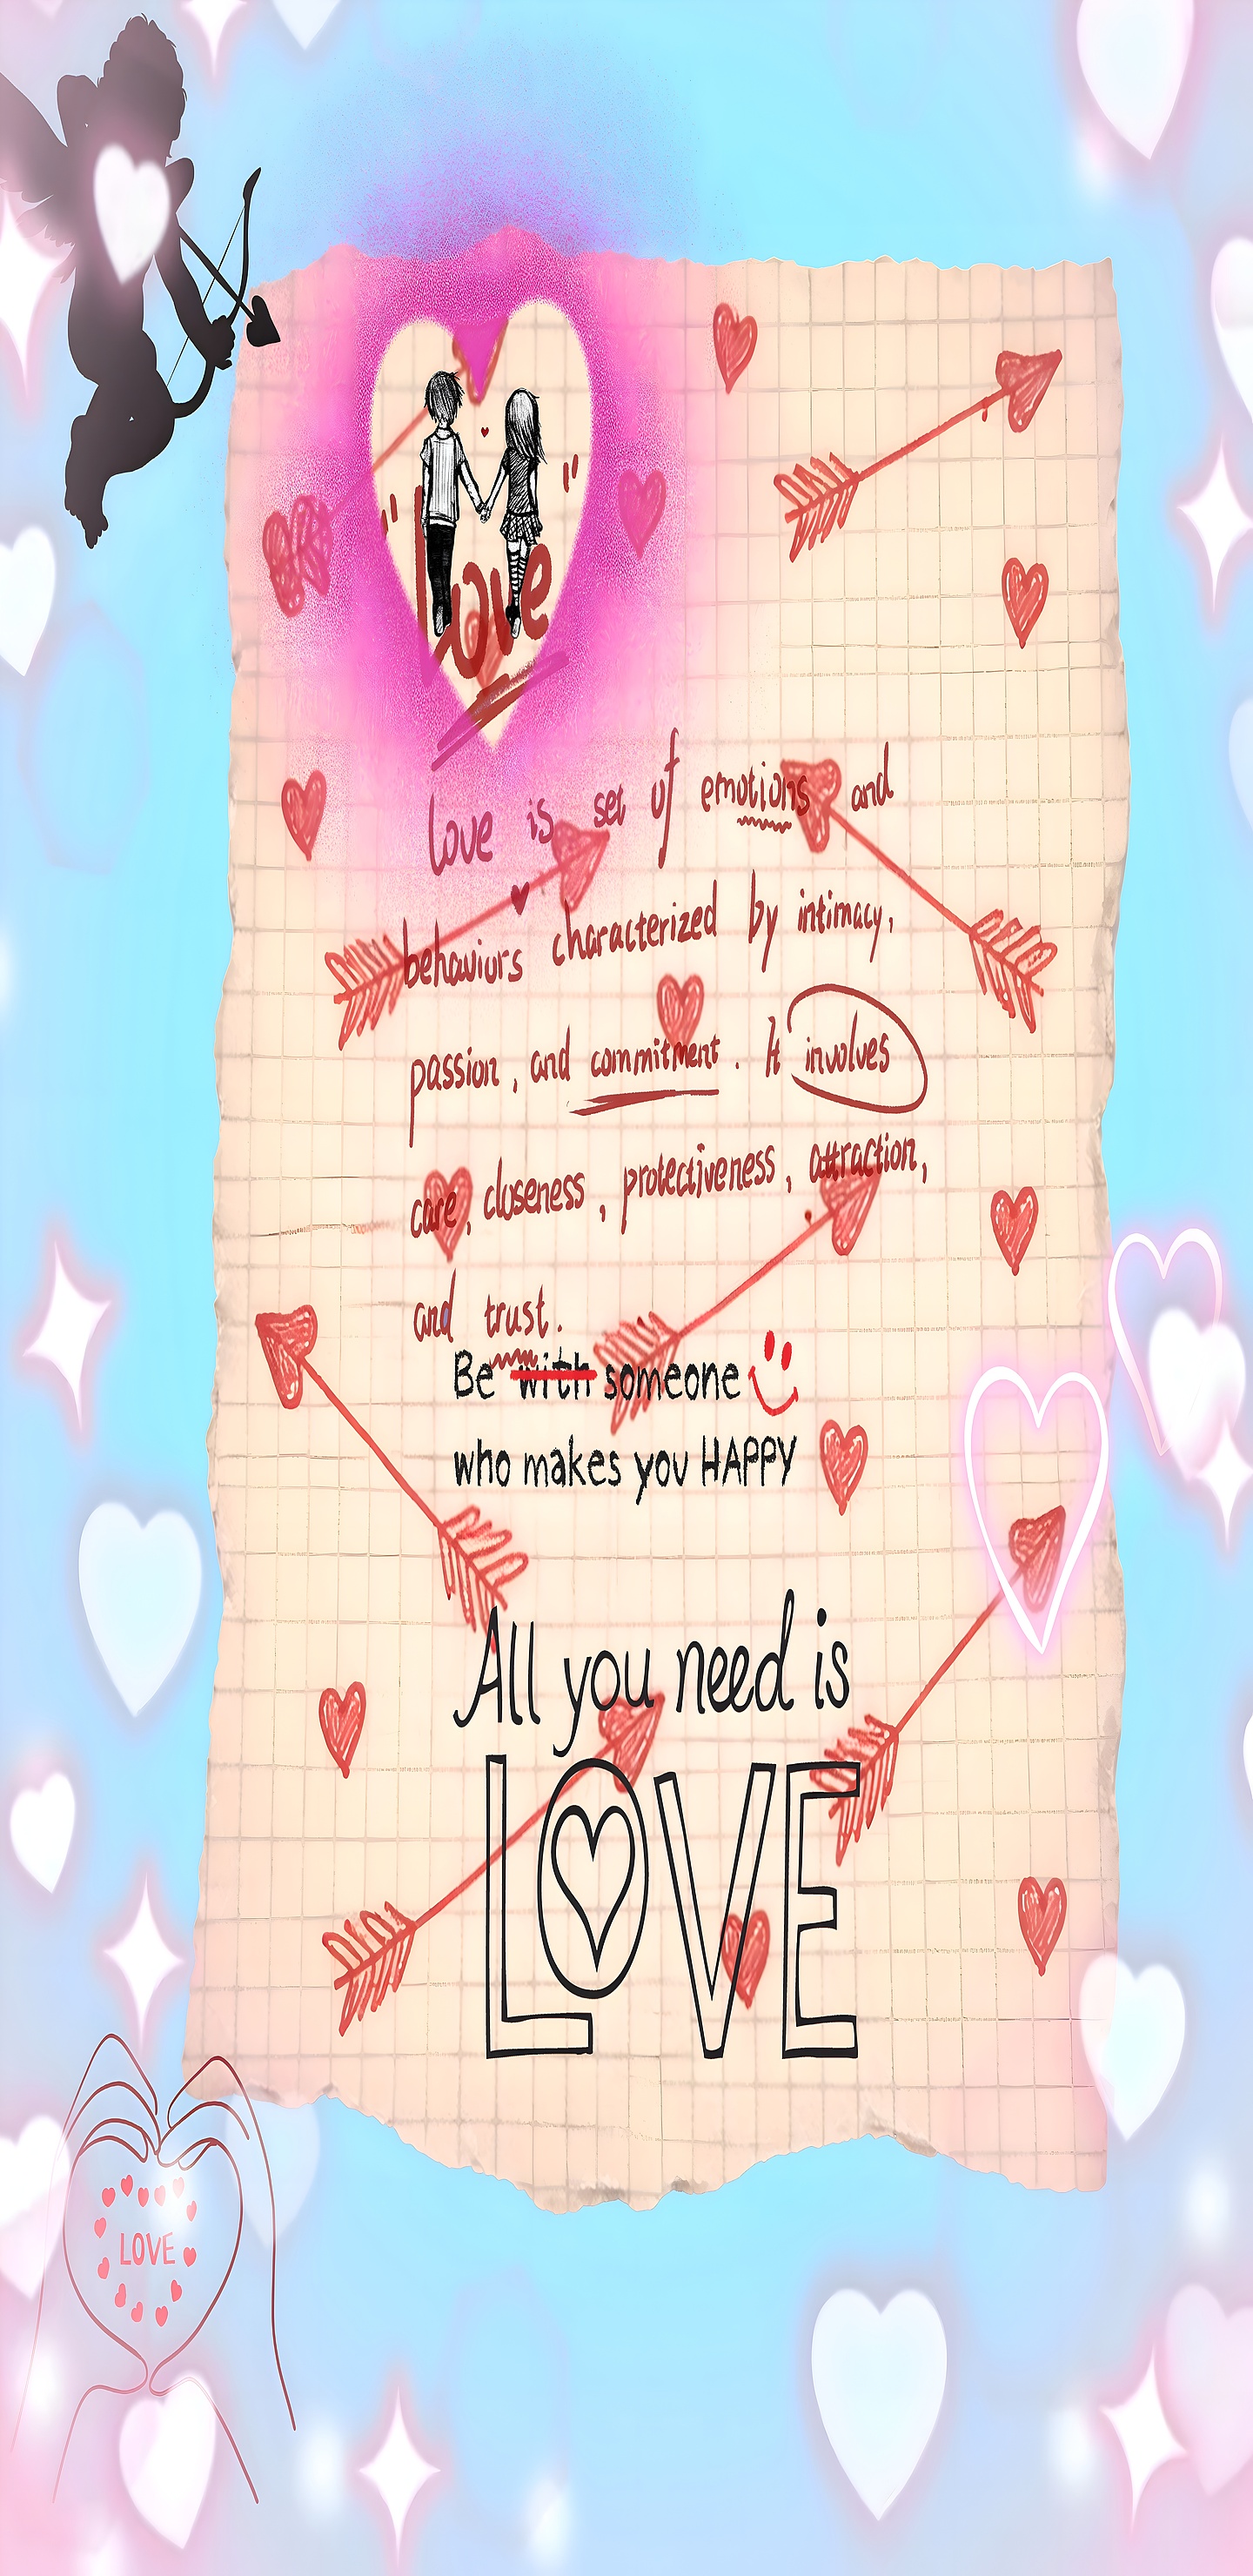 "Love"
Love is set of emotions and
behaviors characterized by intimacy,
passion, and commitment. It involves
care, closeness, protectiveness, attraction,
and trust.
Be with someone
who makes you HAPPY
All you need is
LOVE
LOVE